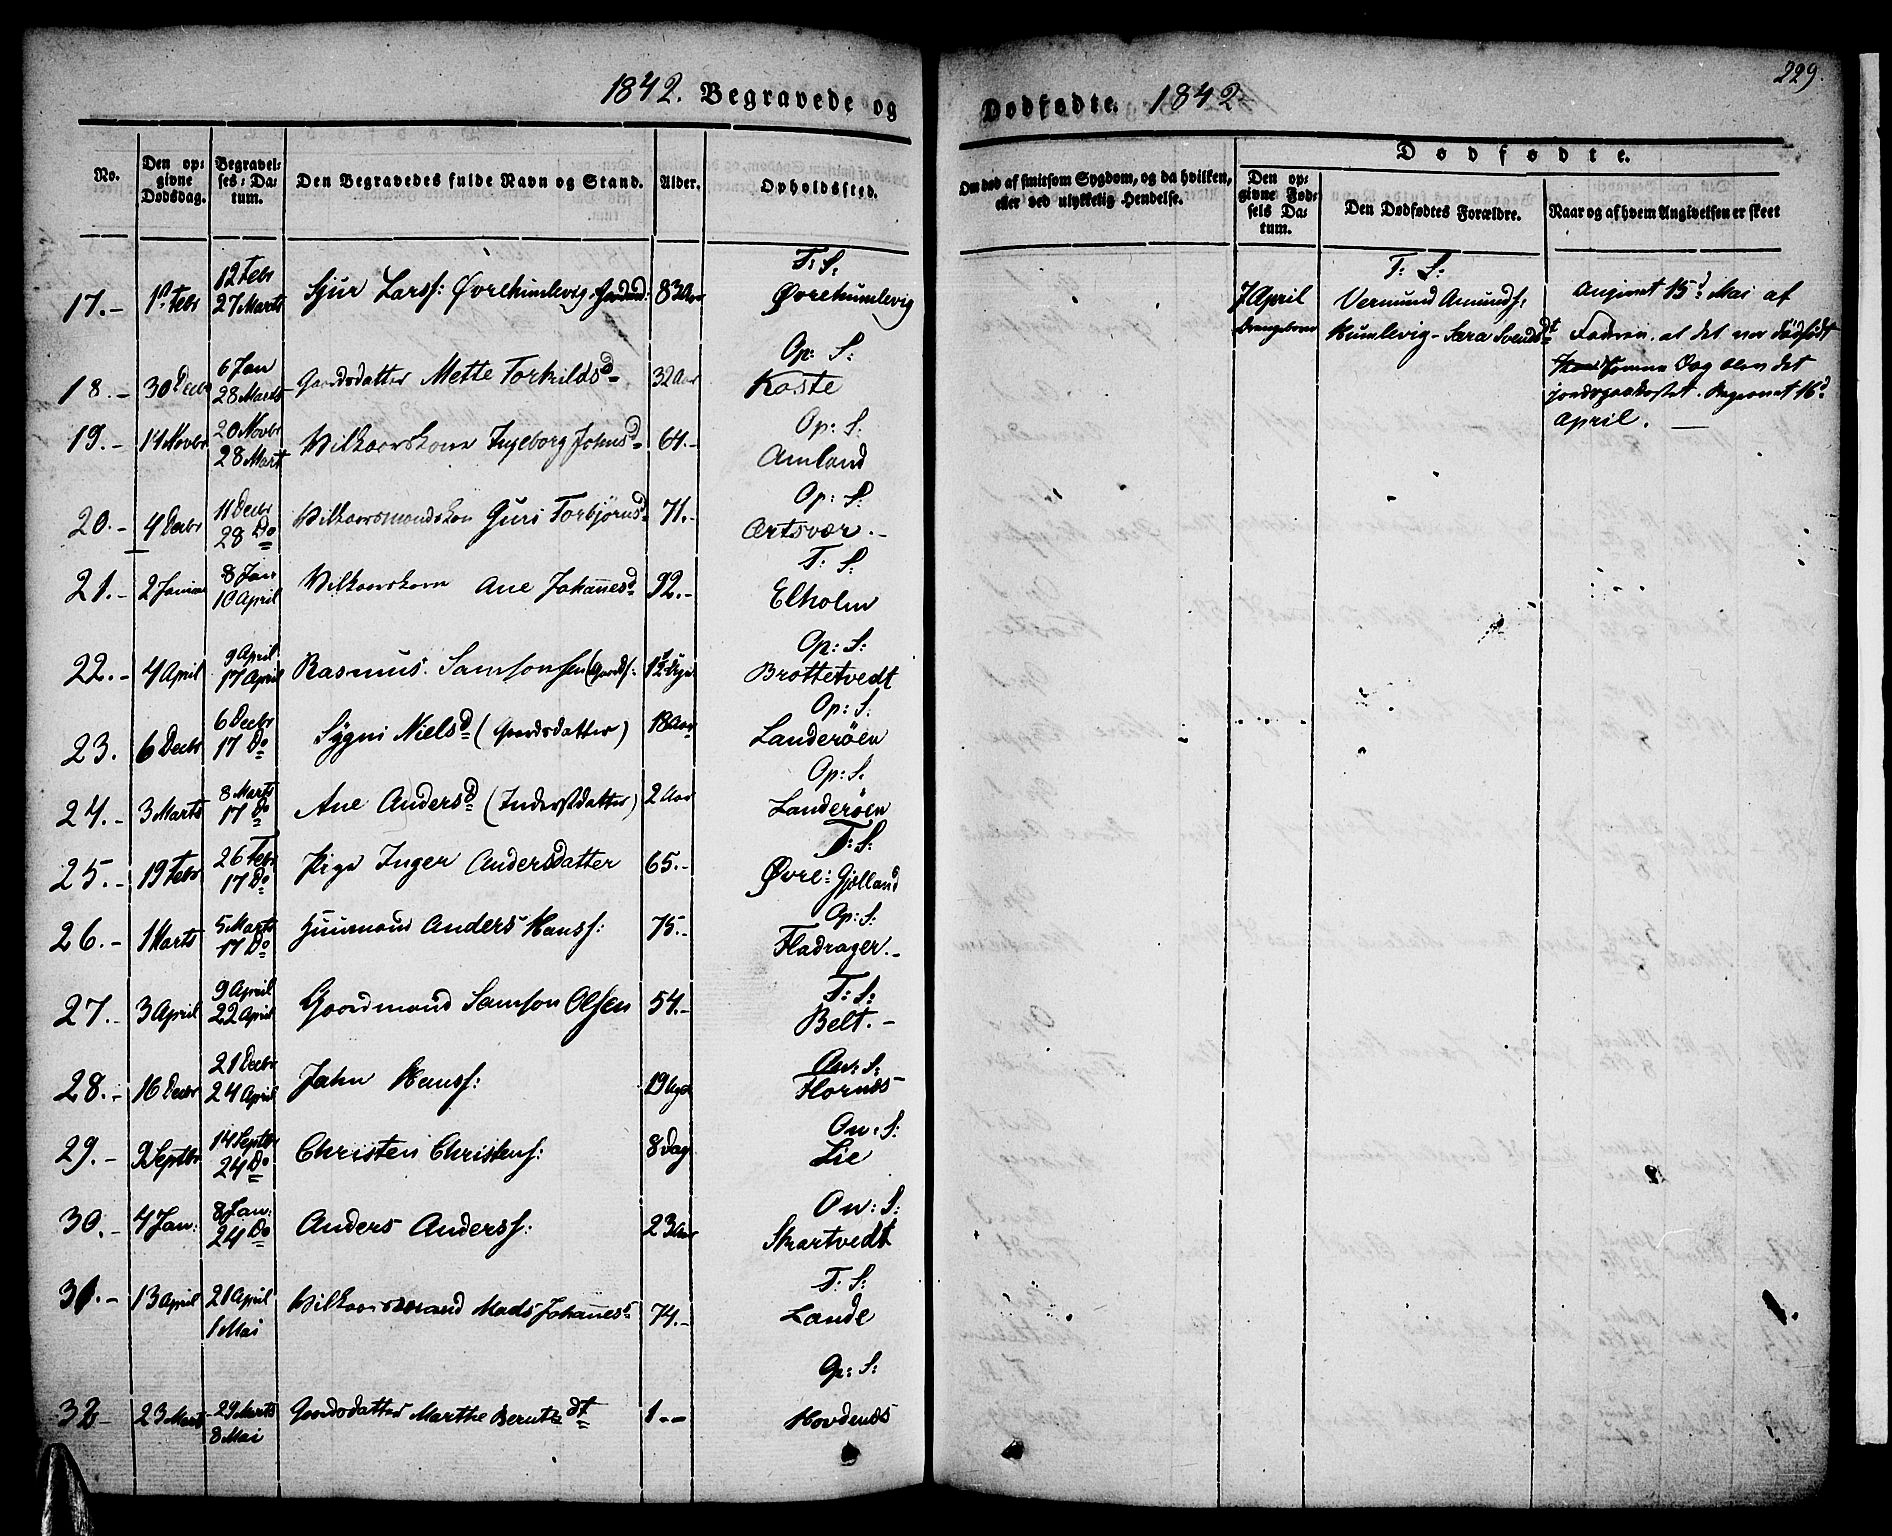 1842. Begravede og
Dødfødte. 1842
229.
No.
Den opgivne Dødsdag.
Begravelses-Datum.
Den Begravedes fulde Navn og Stand.
Alder.
Opholdssted.
Om død af smitsom Sygdom, og da hvilken, eller ved ulykkelig Hendelse.
Dødfødte.
Den opgivne Fødsels Datum.
Den Dødfødtes Forældre.
Naar og af hvem Angivelsen er skeet
T: S:
17.- 1ste Febr 12 Febr 27 Marts Sjur Larss: Øvrehumlevig 83 Aar Øvrehumlevig
Op: S:
18.- 30 Decbr 6 Jan 28 Marts Gaardsdatter Mette Torkildsd 32 Aar Koste
Op: S:
19.- 14 Novbr 20 Novbr 28 Mart Vilkaarskone Ingeborg Johnsd 64.- Amland
Op: S:
20.- 4 Decbr 11 Decbr 28 Do Vilkaarsmandskon Guri Torbjörnsd 71.- Ertsvær.-
T: S:
21.- 2 Januar 8 Jan: 10 April Vilkaarskone Ane Johannesd 92.- Elholm
Op: S:
22.- 4 April 9 April 17 April Rasmus Samsonsen (Gaards: Brottetvedt
Op: S:
23. 6 Decbr 6 Decbr 17 Do Sygni Nielsd (Gaardsdatter) 18 Aar Landeröen
Op: S:
24.- 3 Marts 8 Marts 17 Do Ane Andersd (Inderstdatter) 2 Aar Landeröen
T: S:
25.- 19 Febr 26 Febr 17 Do Pige Inger Andersdatter 65.- Øvre: Gjelland
Op: S:
26.- 1 Marts 5 Marts 17 Do Huusmand Anders Hanss: 75.- Fladrager.-
T: S:
27.- 3 April 9 April 22 April Gaardmand Samson Olsen 54.- Belt.-
On: S:
28.- 16 Decbr 21 Decbr 24 April John Hanss: 19 Uger Hornæs
On: S:
29.- 9 Septbr 14 Septbr 24 Do Christen Christens: 8 Dag Lie
On: S:
30.- 4 Jan: 8 Jan: 24 Do Anders Anderss: 23 Aar Skartvedt
T: S:
31.- 13 April 21 April 1 Mai Vilkaarsmand Mads Johannes: 74.- Lande
Op: S:
32- 23 Mart 29 Marts 8 Mai Gaardsdatter Marthe Berntsdt 1.- Hovdenæs
T: S:
7 April Drengebarn
Vermund Amunds:
Humlevig - Sara Svendsdt
Angivet 15d Mai af
Faderen, at det var dödfödt
samme Dag blev det
jordspaakastet. Begravet 16d
April.